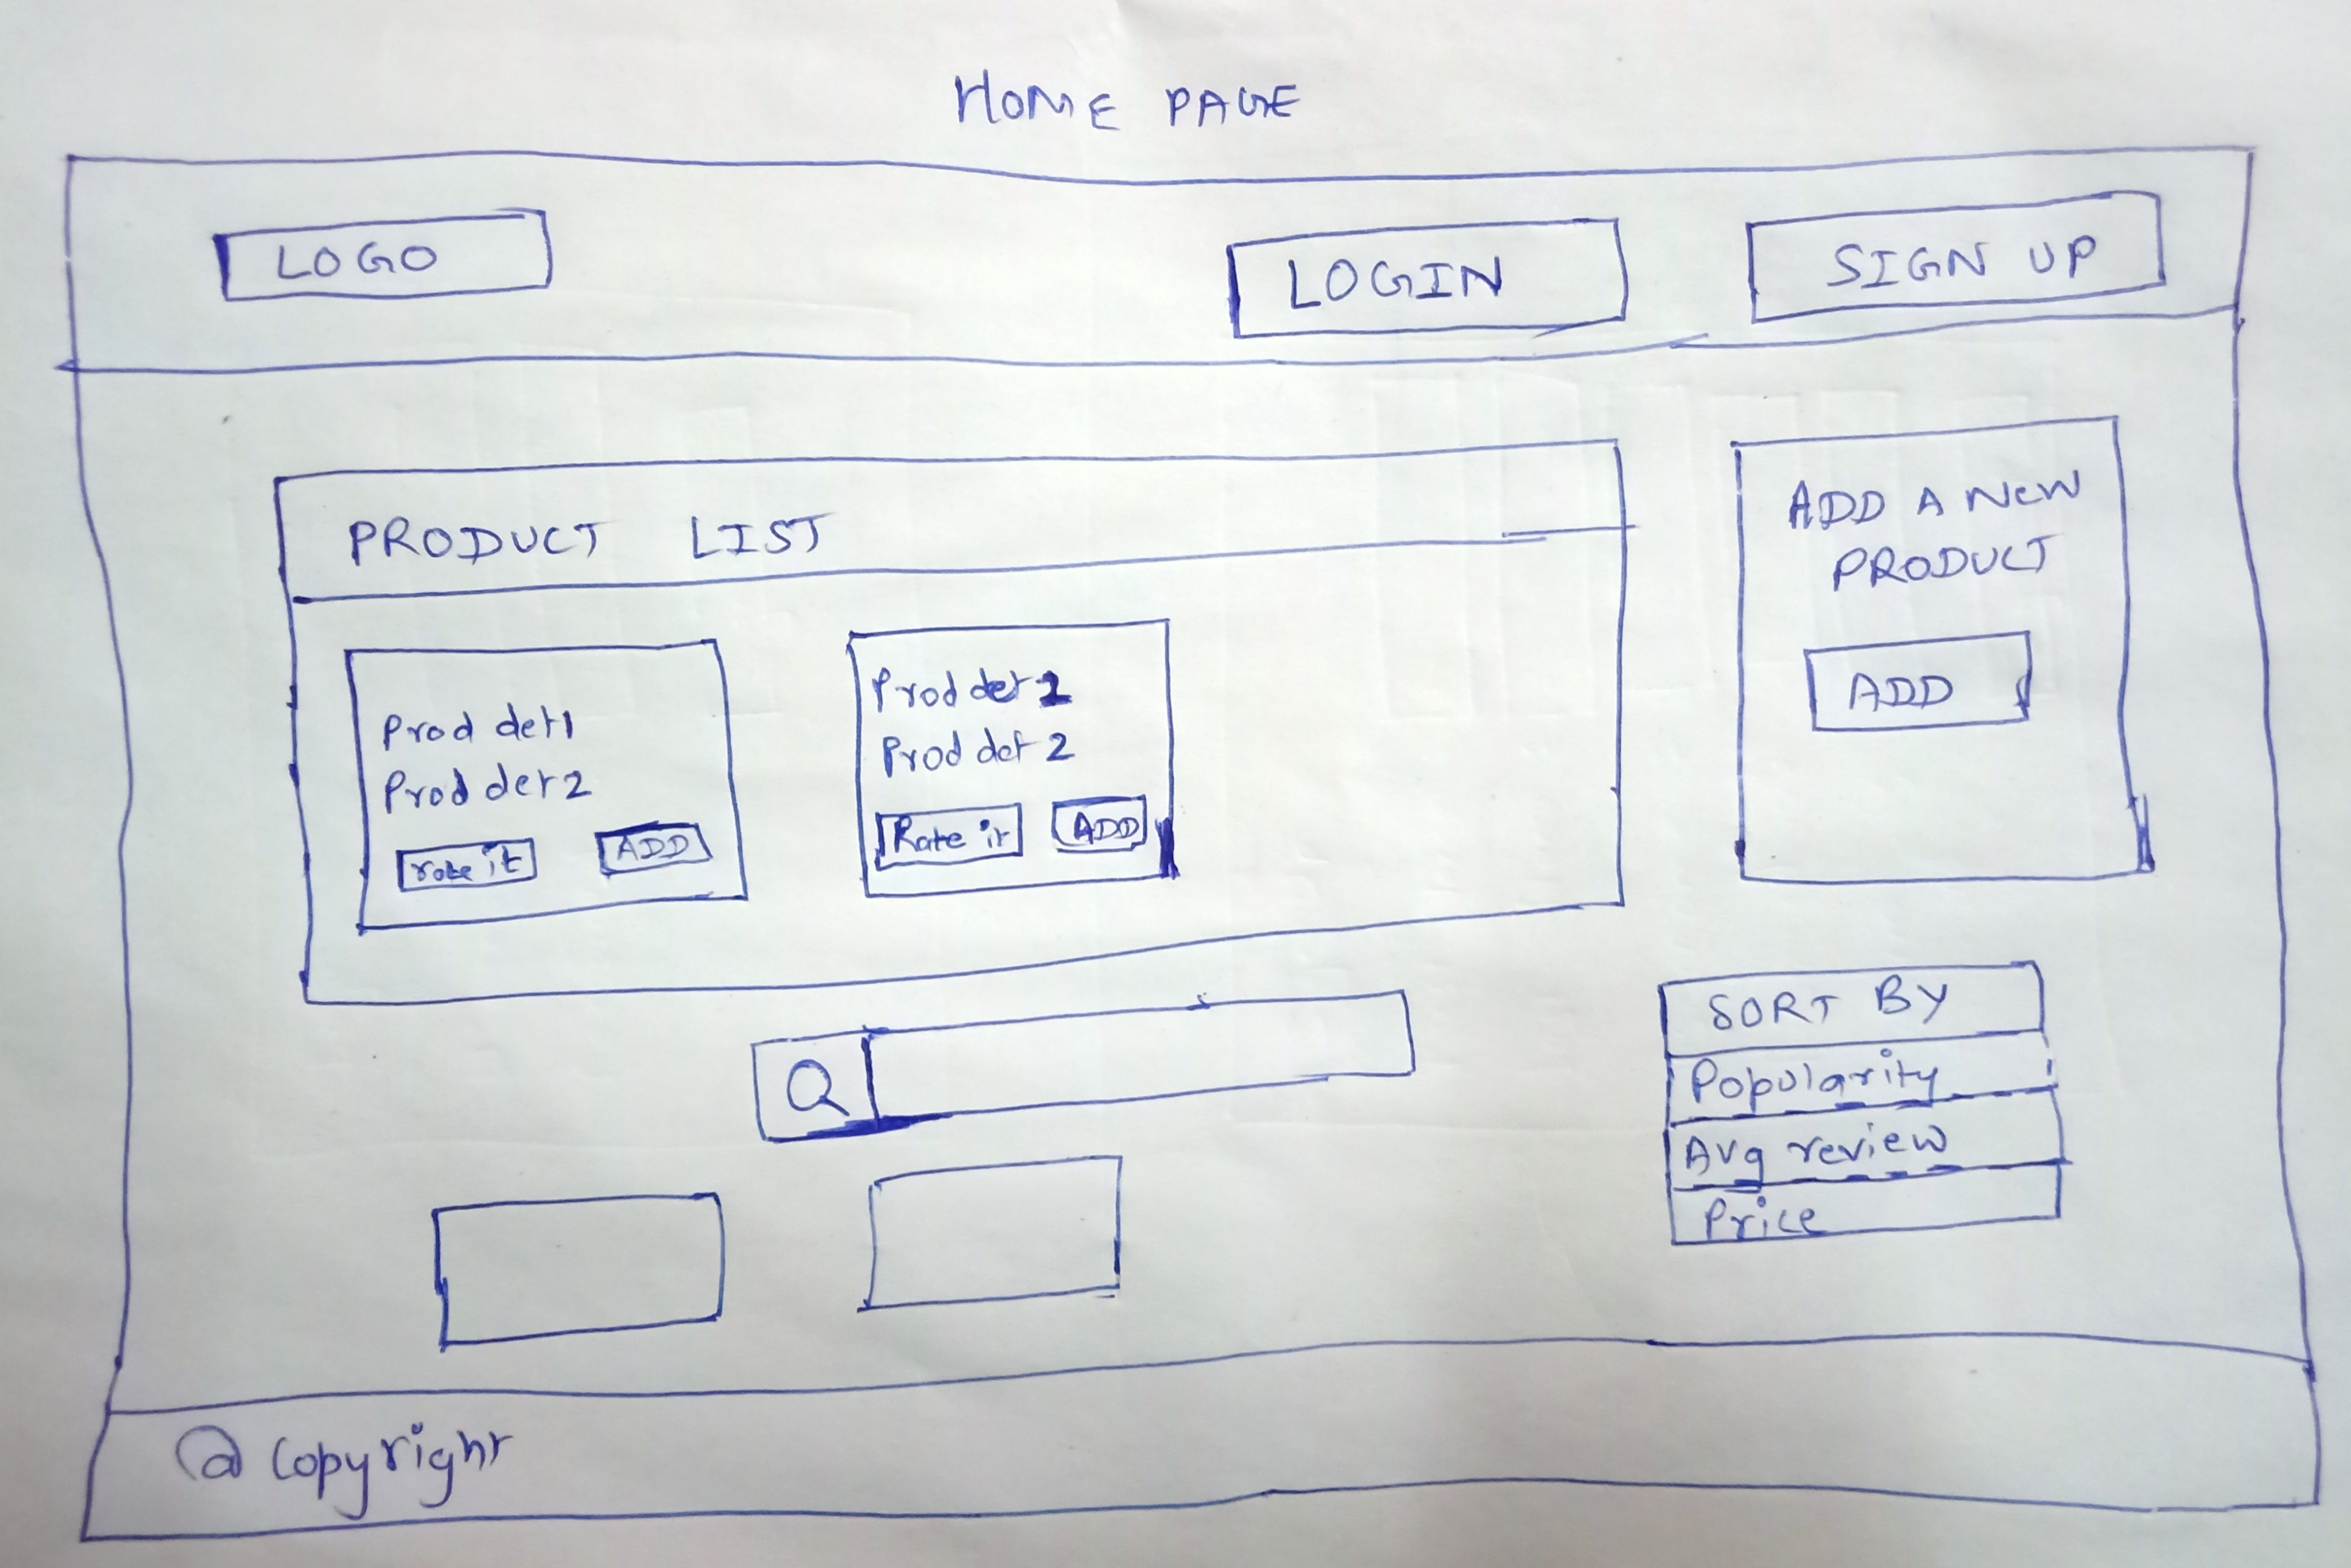 HOME PAGE
LOGO
LOGIN
SIGN UP
PRODUCT LIST
Prod det1
Prod det2
rate it
ADD
Prod det 1
Prod det 2
Rate it
ADD
ADD A NEW
PRODUCT
ADD
SORT BY
Popularity
Avg review
Price
@ Copyright